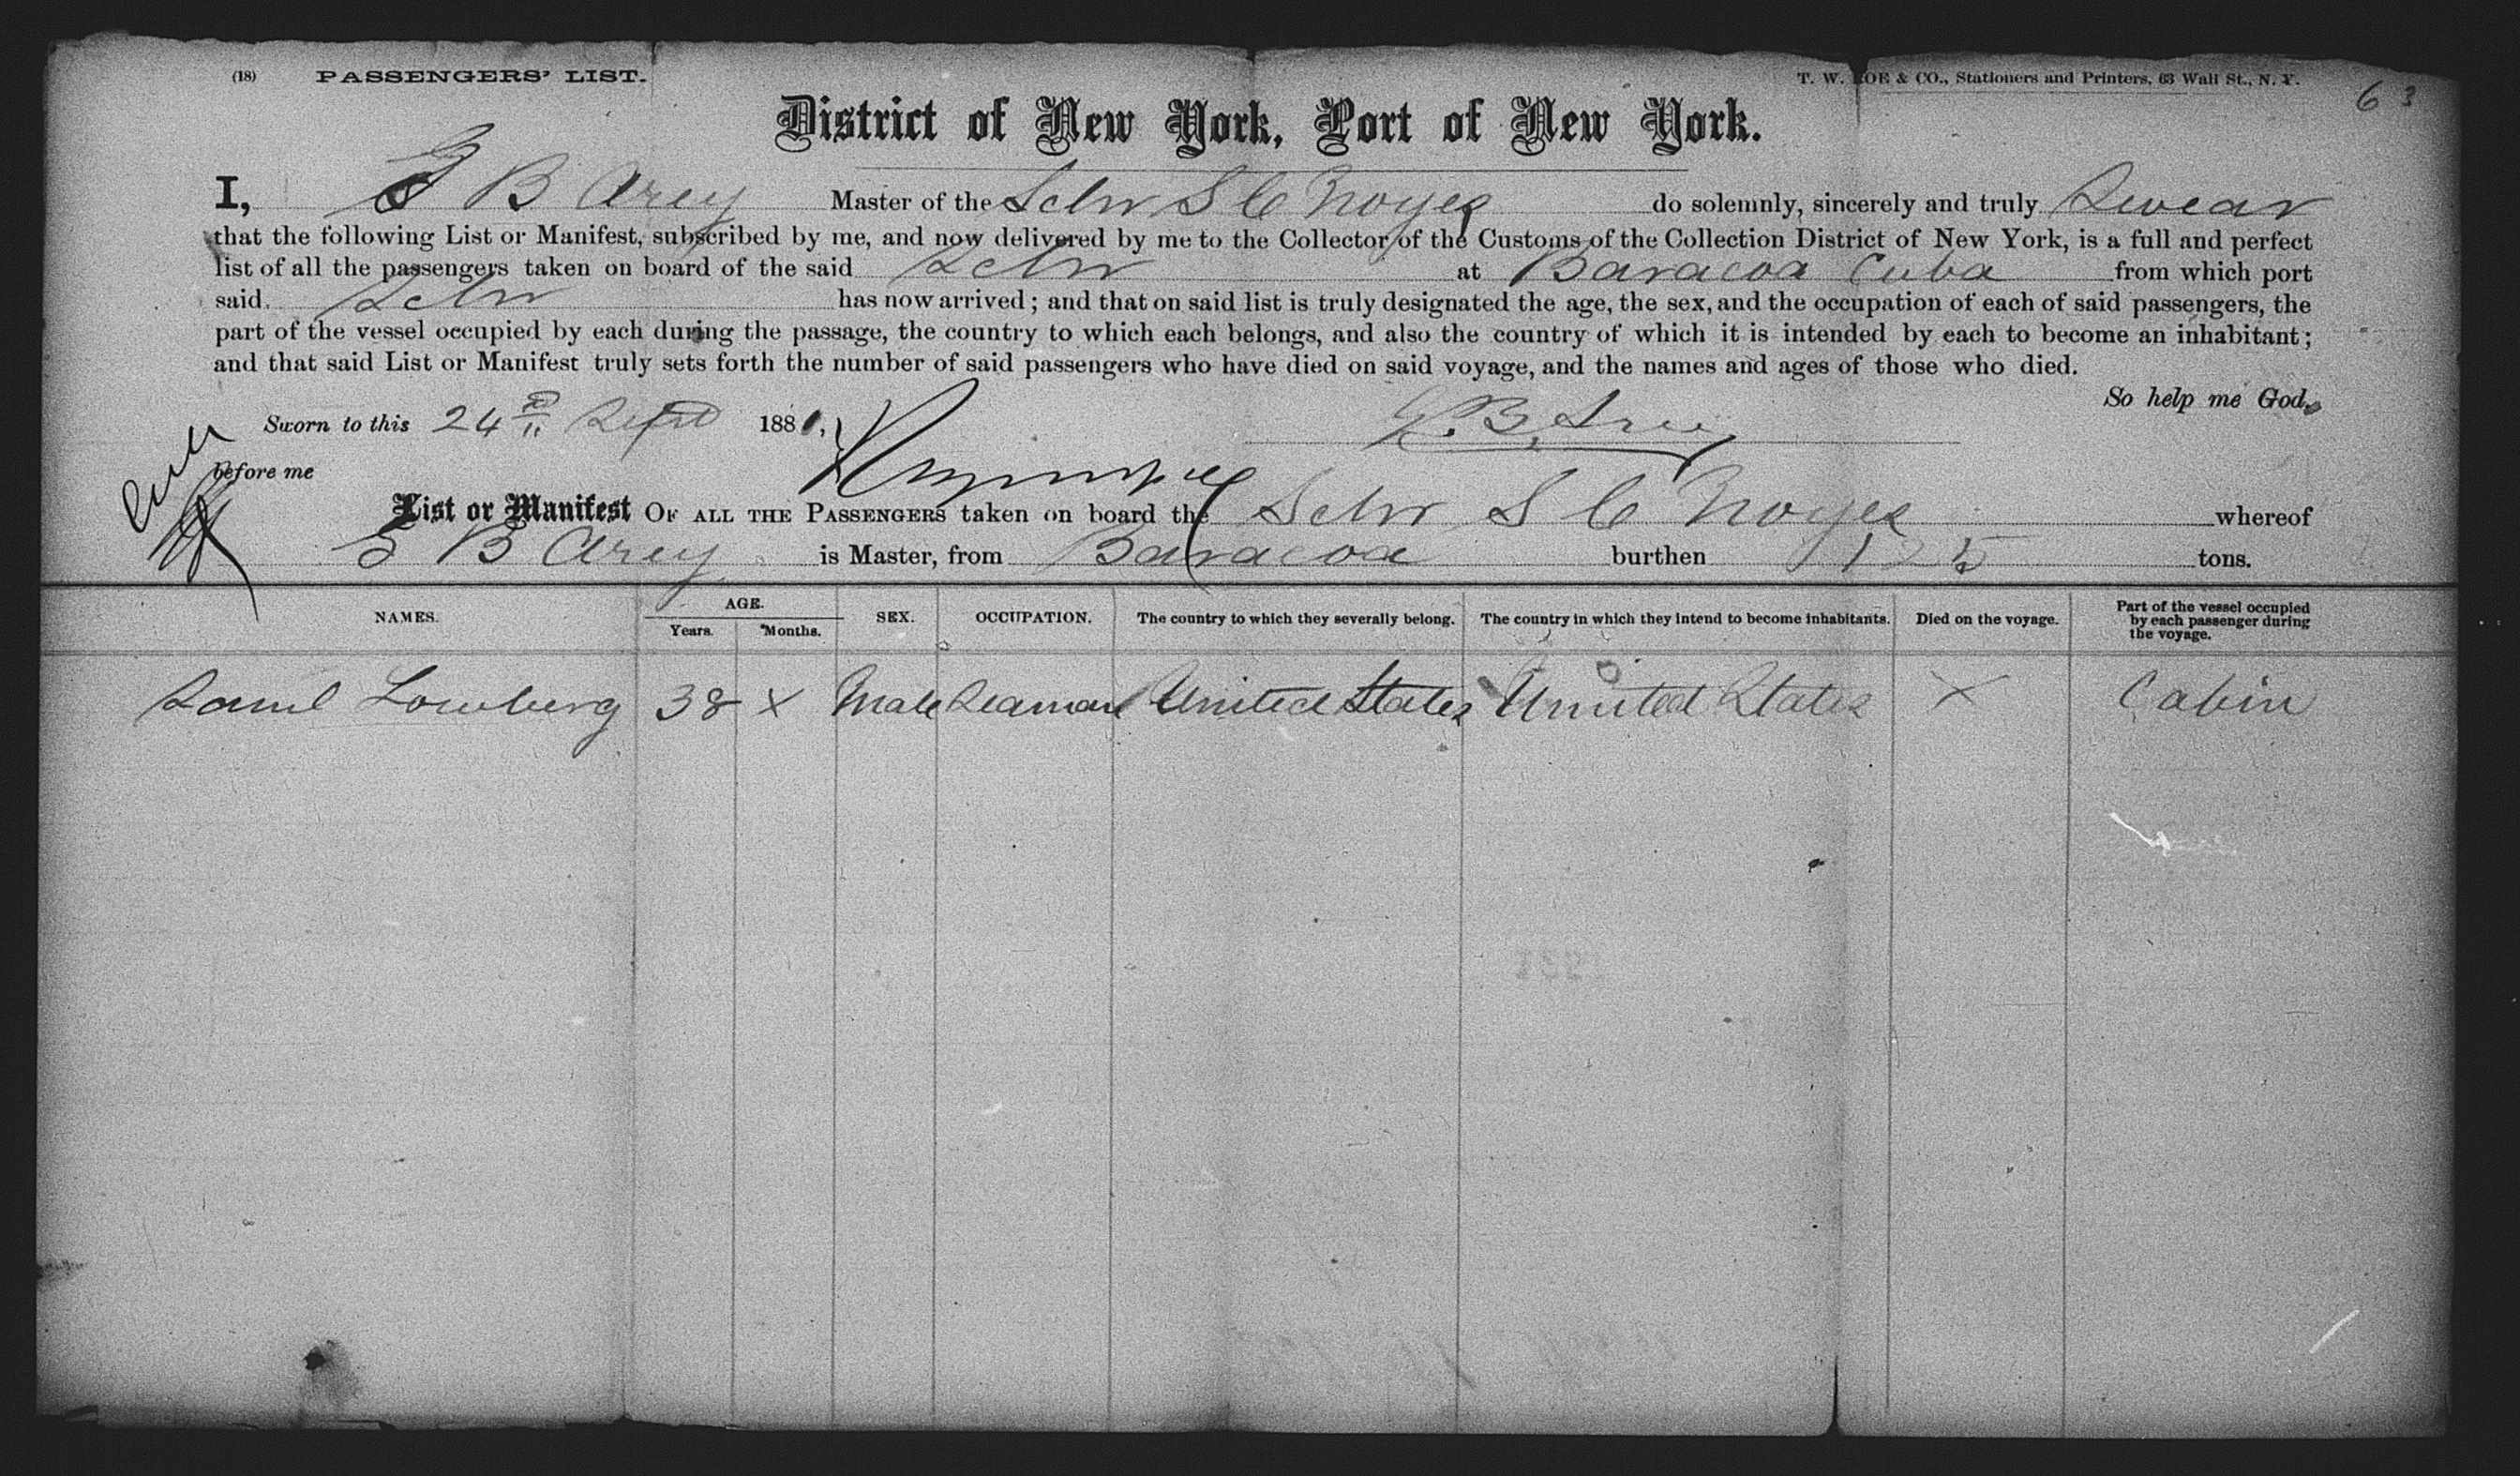 (18) PASSENGERS' LIST. T. W. ROE & CO., Stationers and Printers, 63 Wall St., N. Y. 63
District of New York, Port of New York.
I, G B Arey Master of the Schr S C Noyes do solemnly, sincerely and truly Swear
that the following List or Manifest, subscribed by me, and now delivered by me to the Collector of the Customs of the Collection District of New York, is a full and perfect
list of all the passengers taken on board of the said Schr at Baracoa Cuba from which port
said Schr has now arrived; and that on said list is truly designated the age, the sex, and the occupation of each of said passengers, the
part of the vessel occupied by each during the passage, the country to which each belongs, and also the country of which it is intended by each to become an inhabitant;
and that said List or Manifest truly sets forth the number of said passengers who have died on said voyage, and the names and ages of those who died.
So help me God.
Sworn to this 24 Sept 1881, G. B. Arey
before me
List or Manifest OF ALL THE PASSENGERS taken on board the Schr S C Noyes whereof
G B Arey is Master, from Baracoa burthen 125 tons.
NAMES. AGE. Years. Months. SEX. OCCUPATION. The country to which they severally belong. The country in which they intend to become inhabitants. Died on the voyage. Part of the vessel occupied by each passenger during the voyage.
Saml Lowberg 38 X Male Seaman United States United States X Cabin